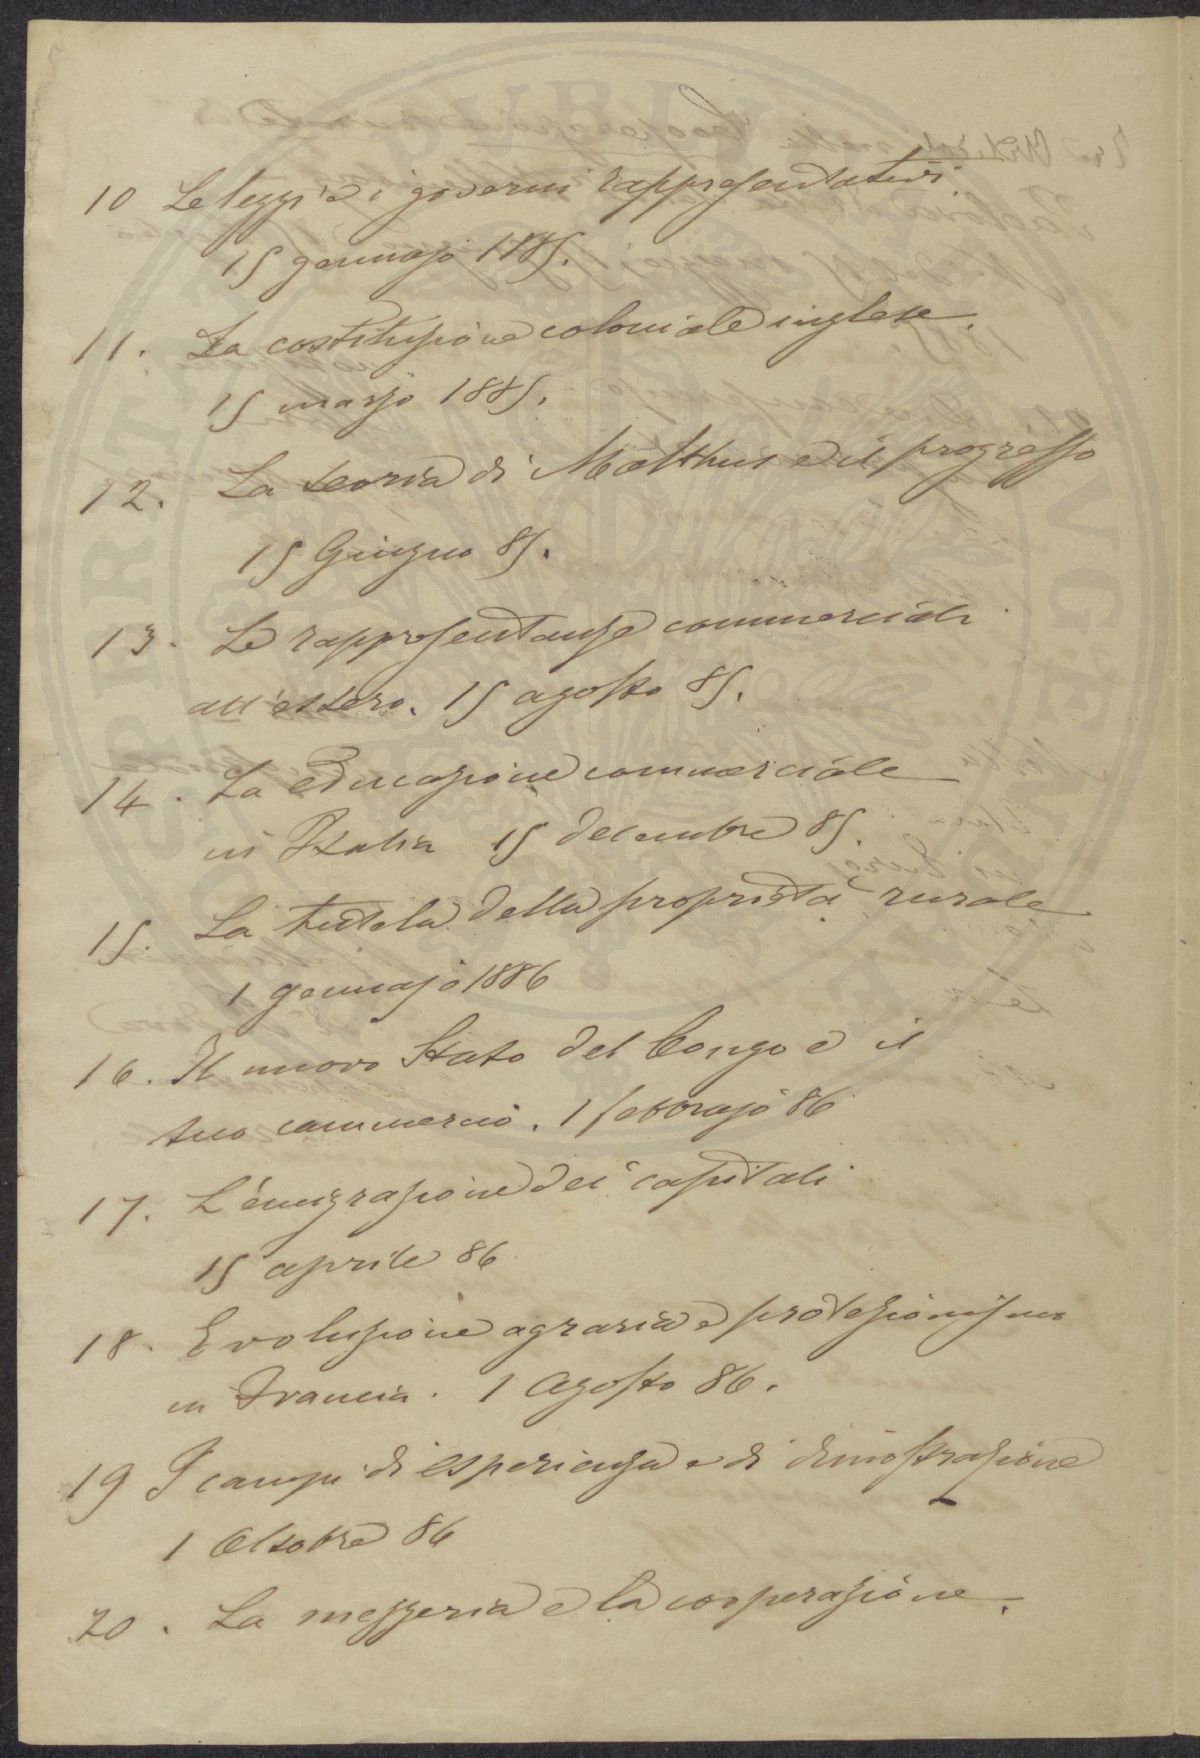 10 Le leggi e i governi rappresentativi.
15 gennajo 1885.
11. La costituzione coloniale inglese.
15 marzo 1885.
12. La teoria di Malthus e il progresso
15 Giugno 85.
13. Le rappresentanze commerciali
all'estero. 15 agosto 85.
14. La educazione commerciale
in Italia 15 decembre 85.
15. La tutela della proprietà rurale
1 gennajo 1886
16. Il nuovo Stato del Congo e il
suo commercio. 1 febbrajo 86
17. L'emigrazione dei capitali
15 aprile 86
18. Evoluzione agraria e protezionismo
in Francia. 1 Agosto 86.
19 I campi di esperienza e di dimostrazione
1 Ottobre 86
20. La mezzeria e la cooperazione.